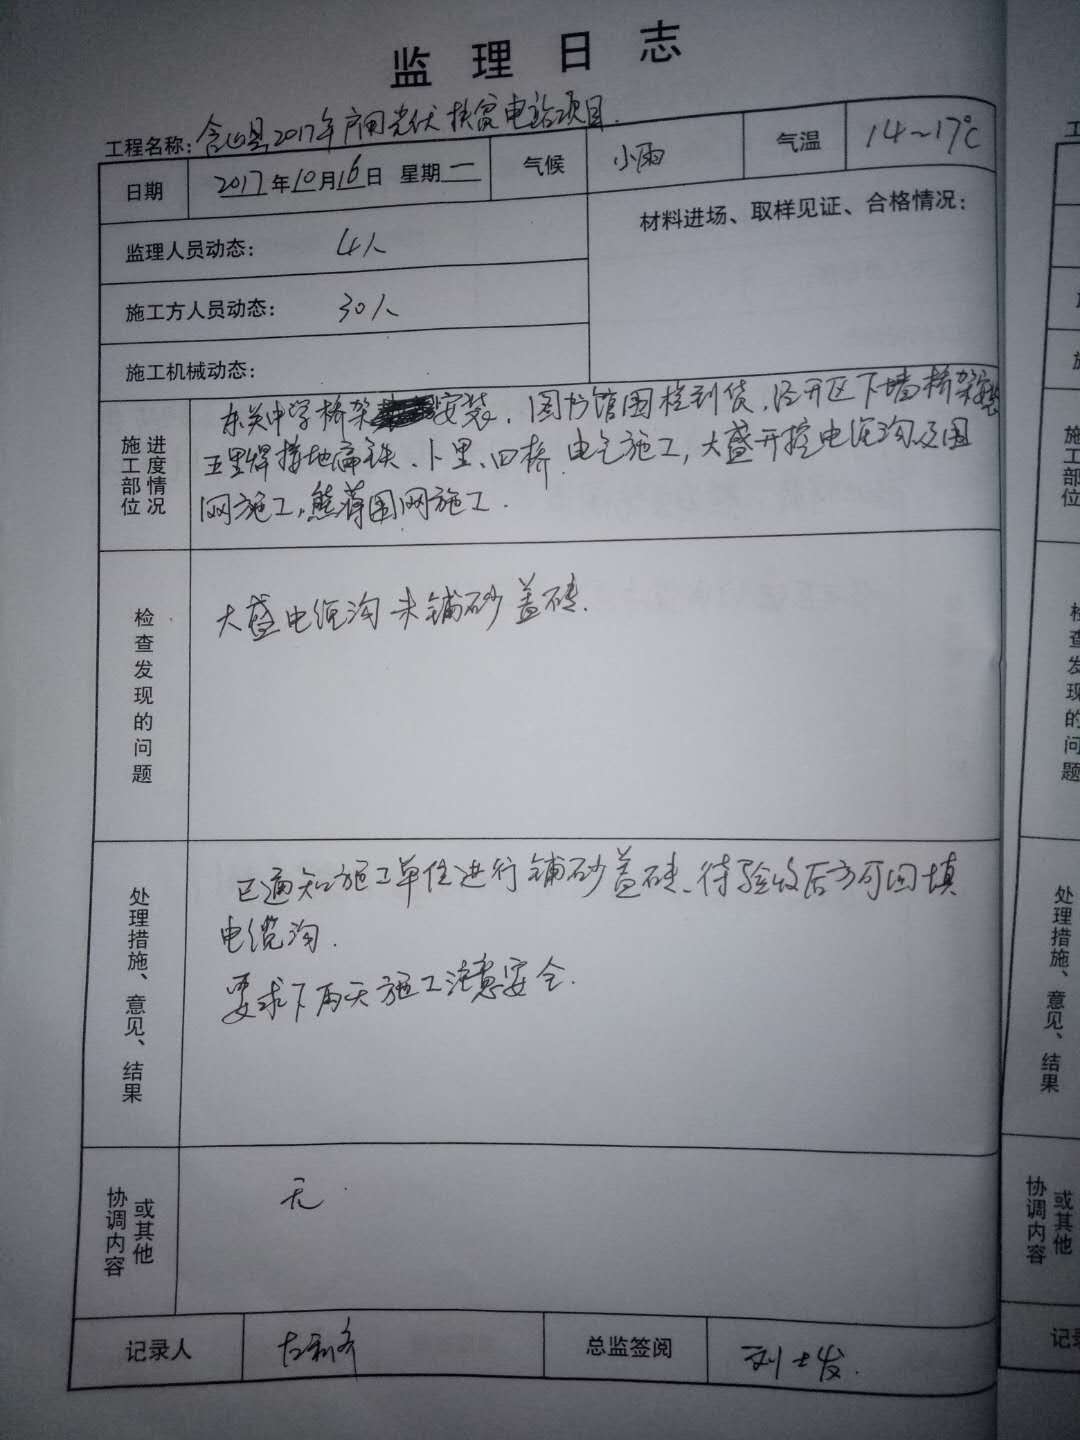 监理日志
工程名称：含山县2017年户用光伏扶贫电站项目.
日期 2017年10月16日 星期一 气候 小雨 气温 14~17℃
监理人员动态： 4人
材料进场、取样见证、合格情况：
施工方人员动态： 30人
施工机械动态：
施工部位进度情况
东关中学桥架安装，图书馆围栏到货，经开区下墙桥架安装
五里焊接地扁铁、卜里、四桥电气施工，大盛开挖电缆沟及围
网施工，熊蒋围网施工.
检查发现的问题
大盛电缆沟未铺砂盖砖.
处理措施、意见、结果
已通知施工单位进行铺砂盖砖、待验收后方可回填
电缆沟.
要求下雨天施工注意安全.
协调内容或其他
无.
记录人 总监签阅 刘士发.
施工部位
检查发现的问题
处理措施、意见、结果
协调内容或其他